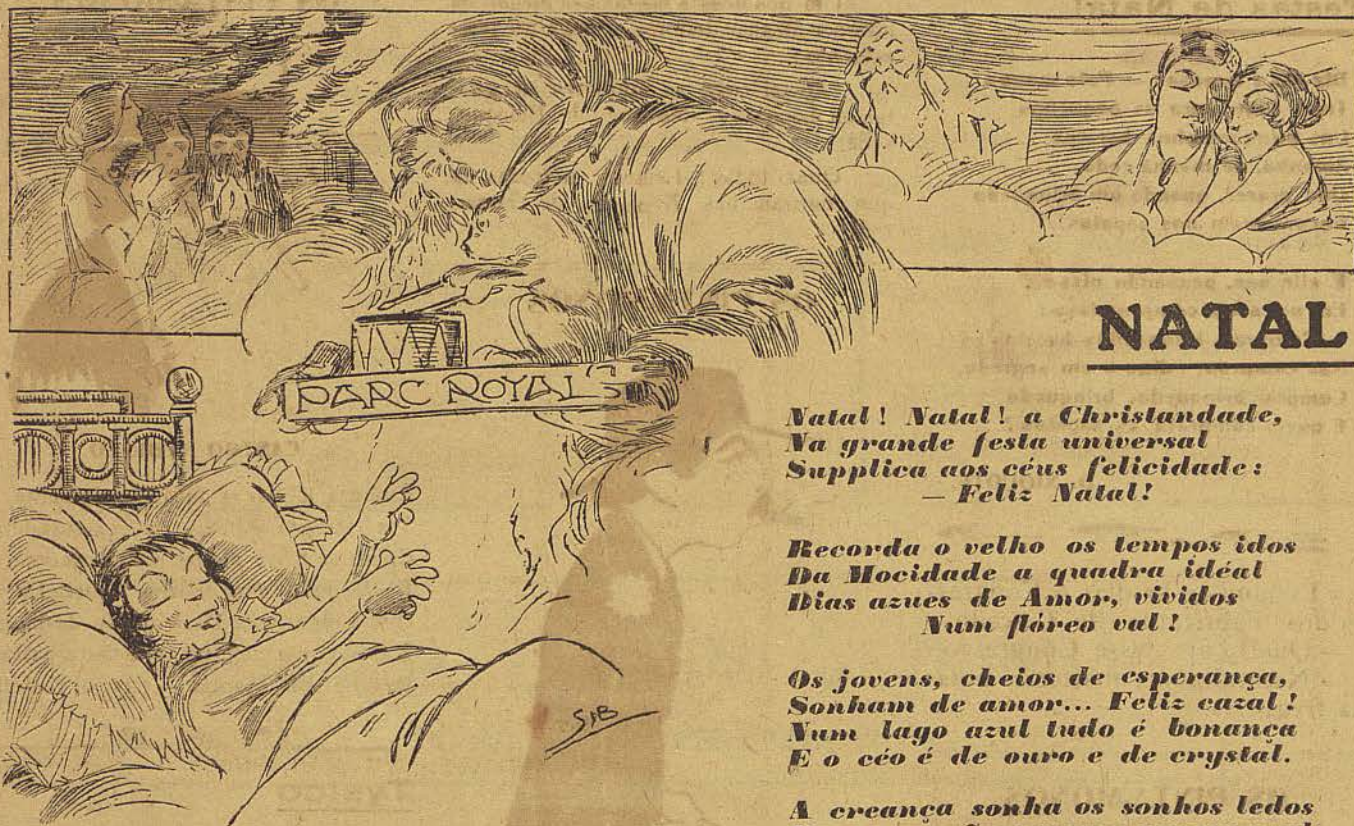 PARC ROYAL
SIB
NATAL
Natal! Natal! a Christandade,
Na grande festa universal
Supplica aos céus felicidade:
— Feliz Natal!
Recorda o velho os tempos idos
Da Mocidade a quadra idéal
Dias azues de Amor, vividos
Num flóreo val!
Os jovens, cheios de esperança,
Sonham de amor... Feliz cazal!
Num lago azul tudo é bonança
E o céo é de ouro e de crystal.
A creança sonha os sonhos ledos